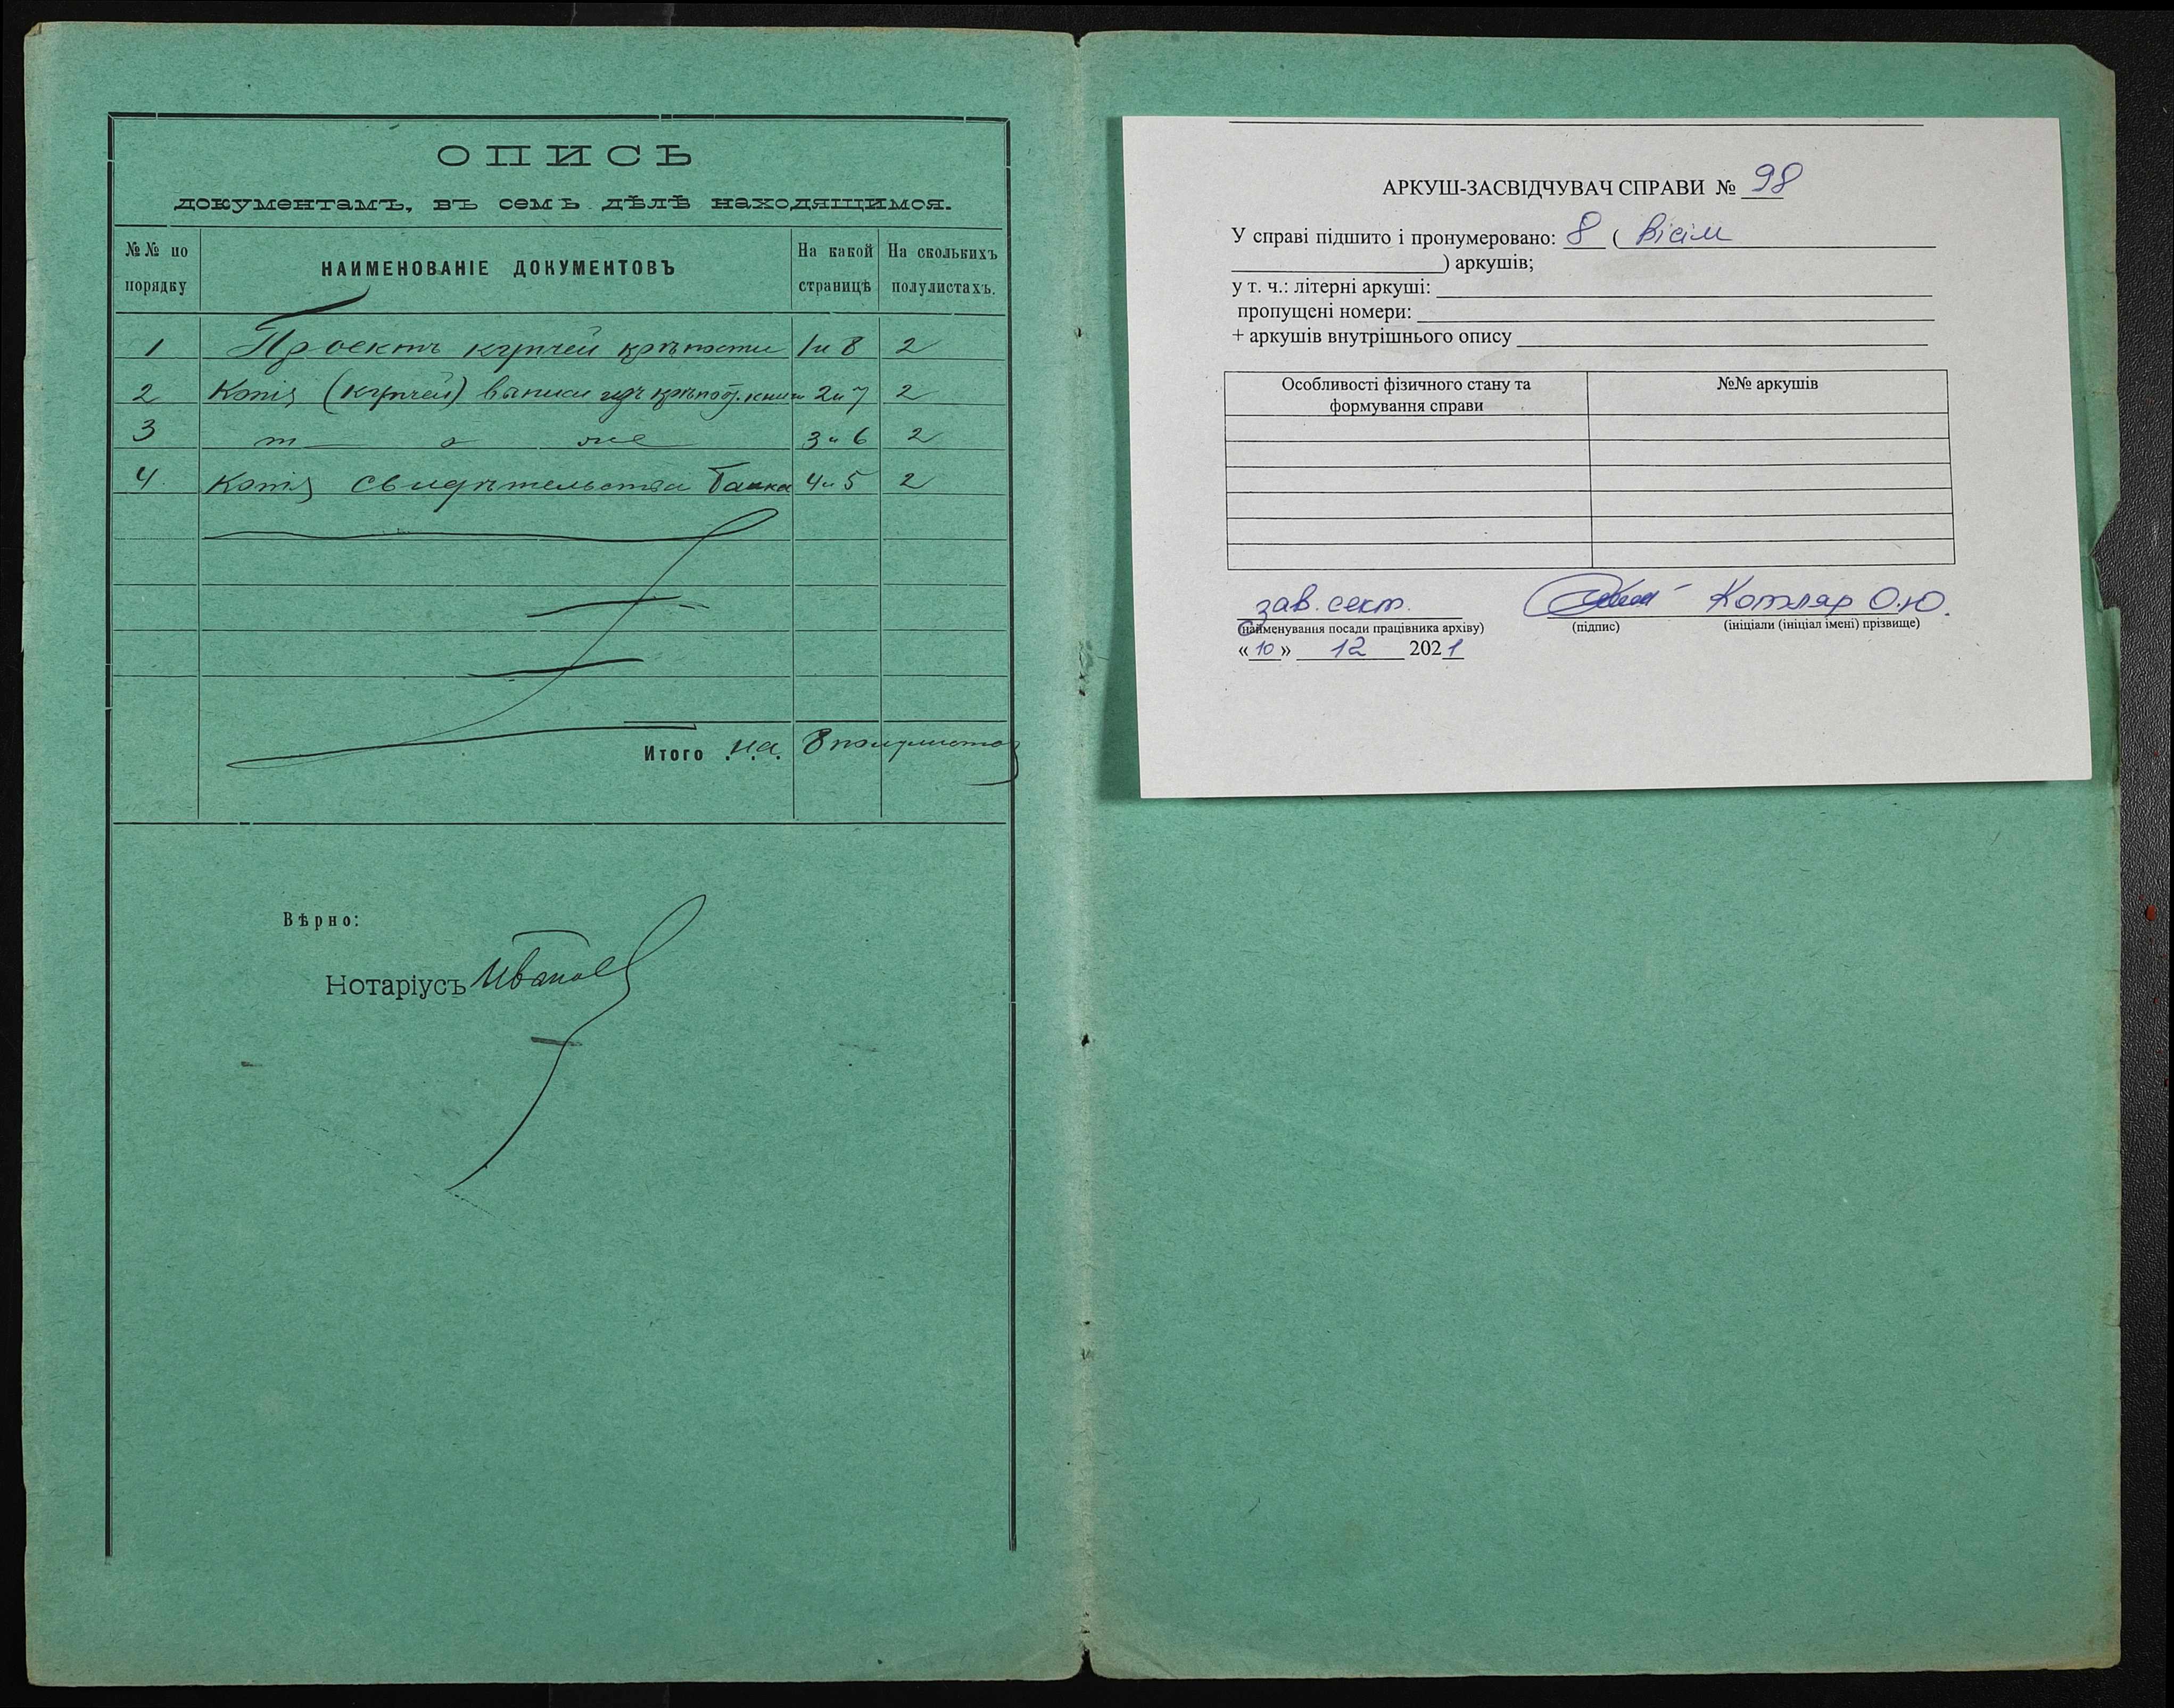 ОПИСЬ
документамъ, въ семъ дѣлѣ находящимся.
№№ по порядку
НАИМЕНОВАНІЕ ДОКУМЕНТОВЪ
На какой страницѣ
На сколькихъ полулистахъ.
1 Проектъ купчей крѣпости 1 и 8 2
2 Копія (купчей) выписи изъ крѣпост. книги 2 и 7 2
3 т о же 3 и 6 2
4. Копія свидѣтельства Банка 4 и 5 2
Итого . . . на 8 полулистах
Вѣрно:
Нотаріусъ Иванов
АРКУШ-ЗАСВІДЧУВАЧ СПРАВИ № 98
У справі підшито і пронумеровано: 8 ( вісім
) аркушів;
у т. ч.: літерні аркуші:
пропущені номери:
+ аркушів внутрішнього опису
Особливості фізичного стану та формування справи
№№ аркушів
зав. сект. Котляр О.Ю.
(найменування посади працівника архіву) (підпис) (ініціали (ініціал імені) прізвище)
«10» 12 2021